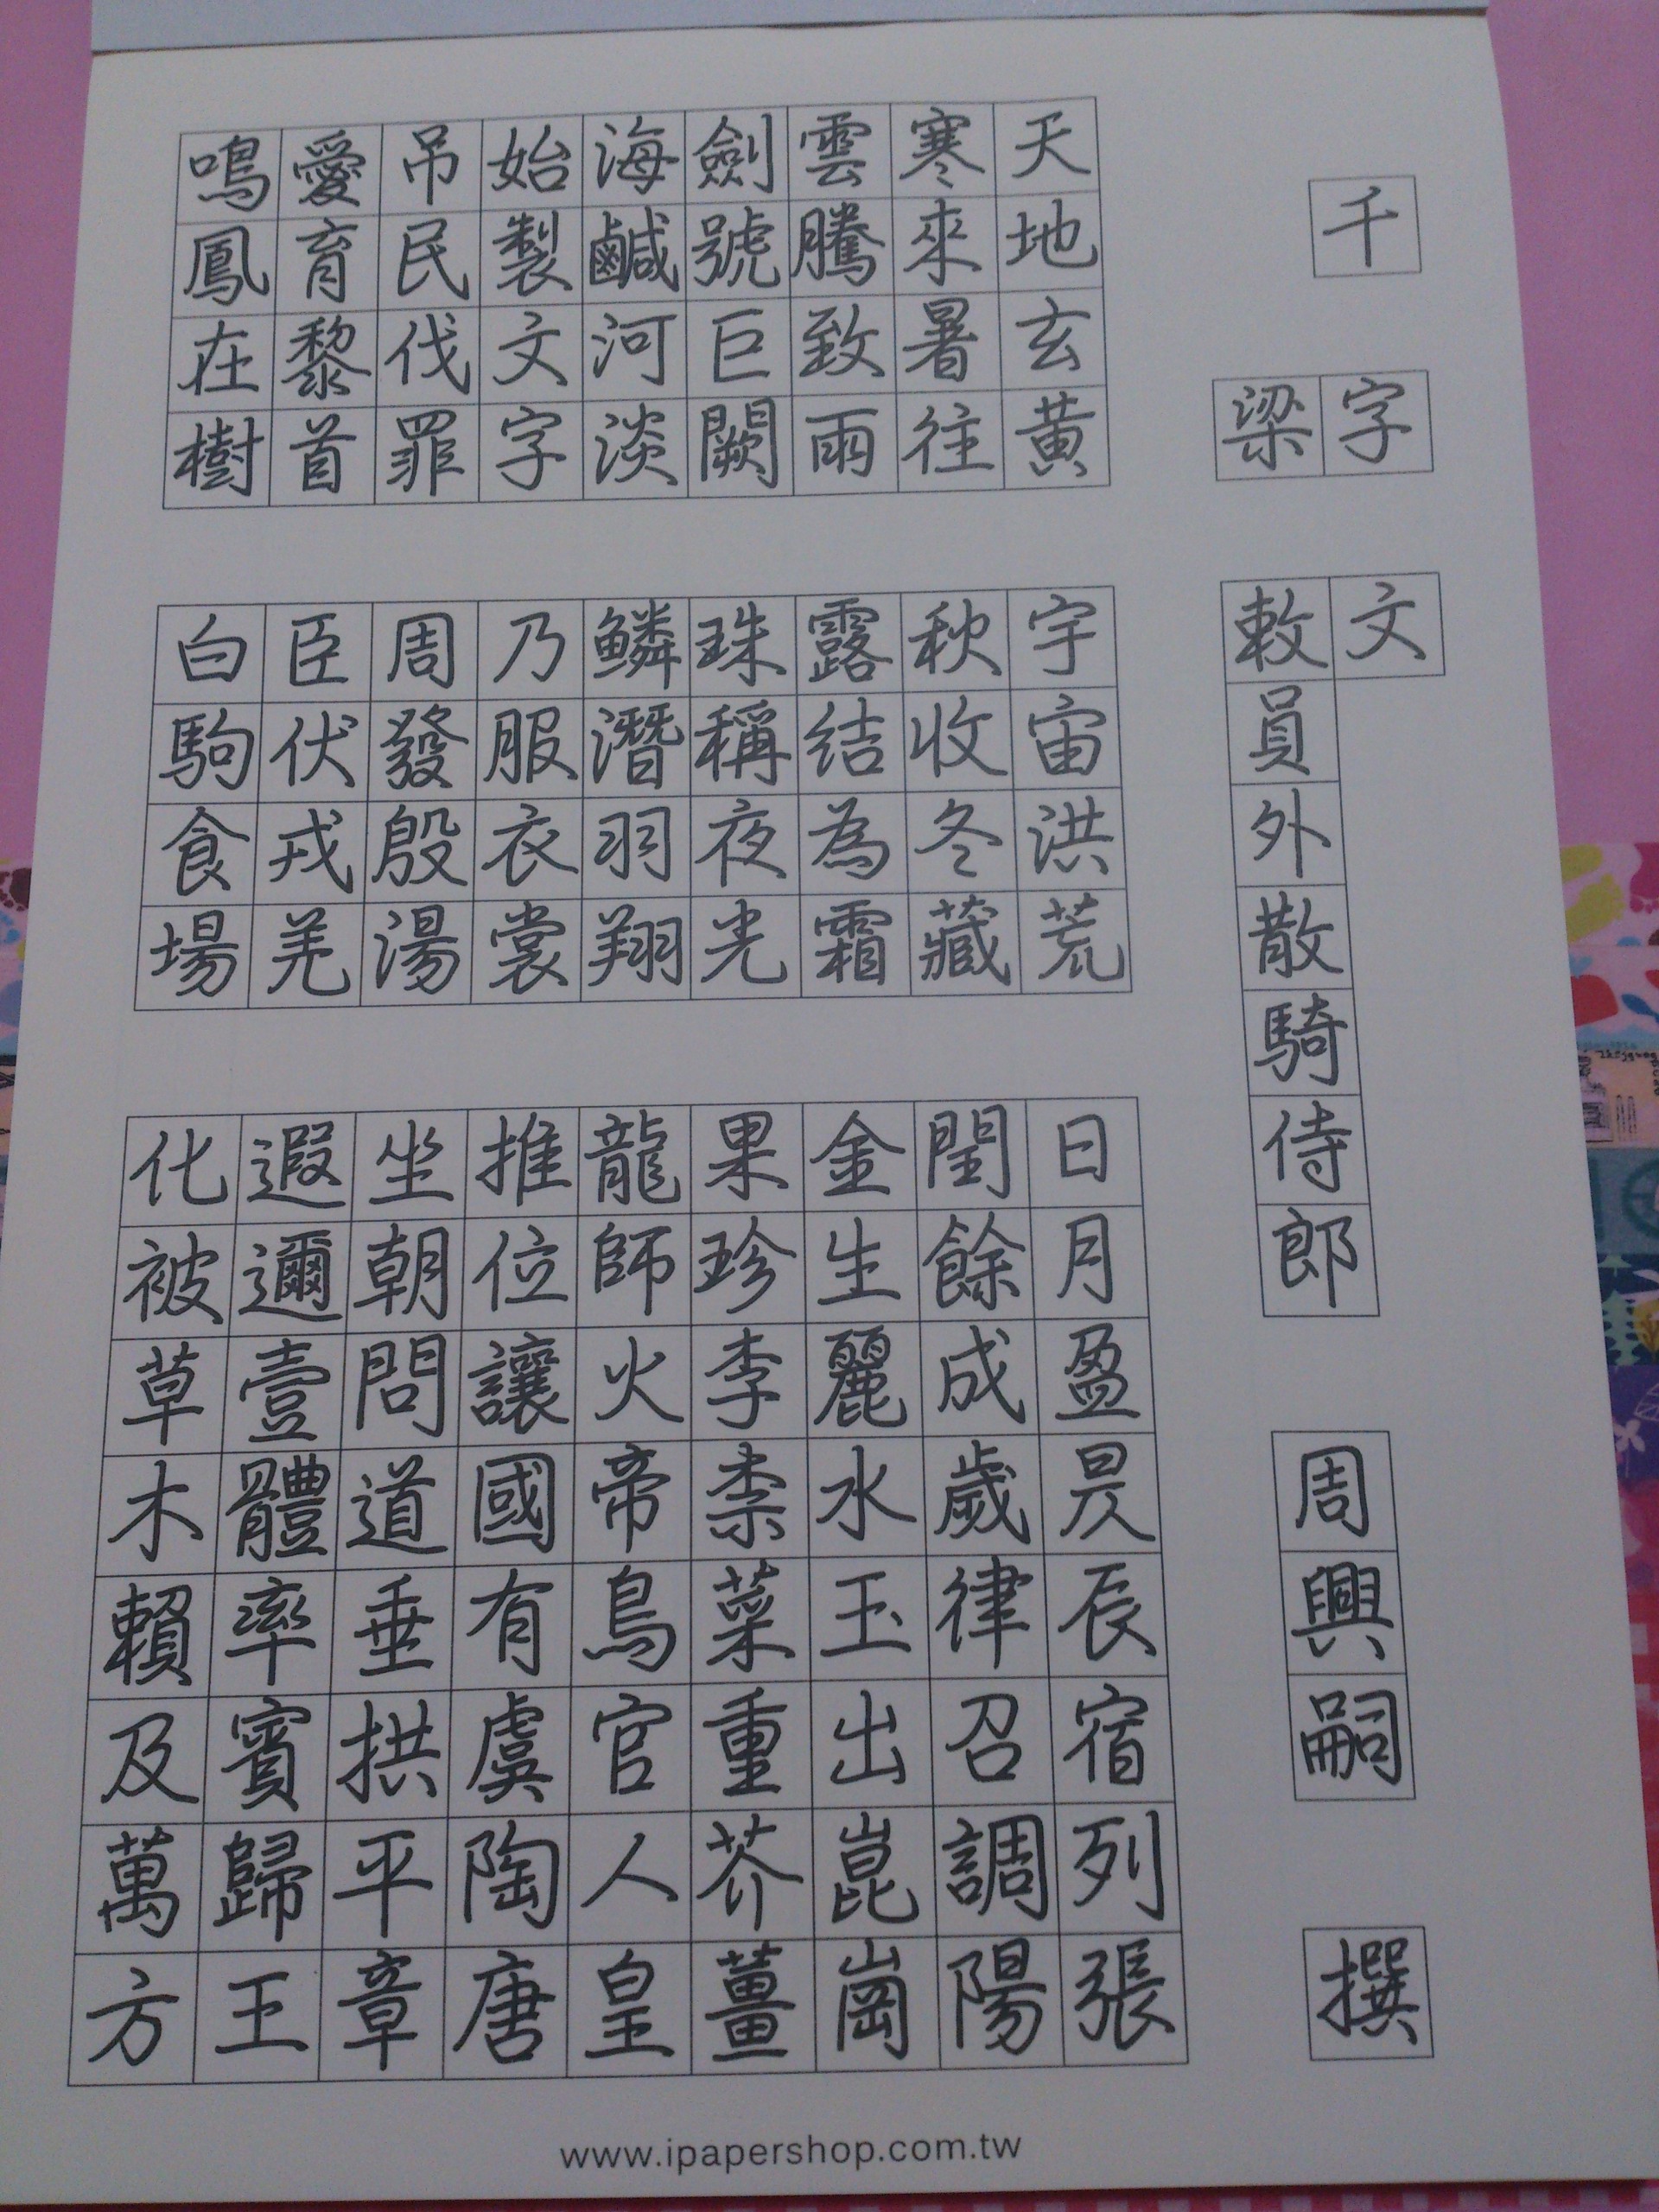 千字文
梁 敕員外散騎侍郎 周興嗣 撰
天地玄黃 宇宙洪荒 日月盈昃辰宿列張
寒來暑往 秋收冬藏 閏餘成歲律召調陽
雲騰致雨 露結為霜 金生麗水玉出崑崗
劍號巨闕 珠稱夜光 果珍李柰菜重芥薑
海鹹河淡 鱗潛羽翔 龍師火帝鳥官人皇
始製文字 乃服衣裳 推位讓國有虞陶唐
吊民伐罪 周發殷湯 坐朝問道垂拱平章
愛育黎首 臣伏戎羌 遐邇壹體率賓歸王
鳴鳳在樹 白駒食場 化被草木賴及萬方
www.ipapershop.com.tw